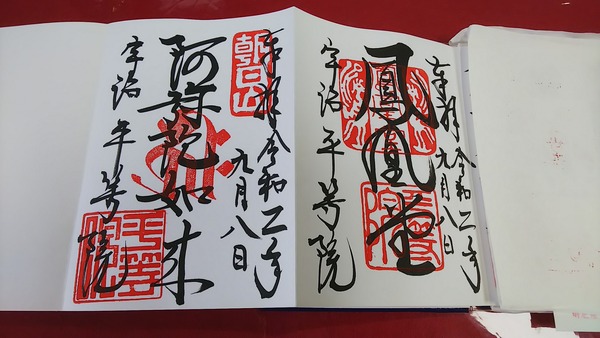 奉拝 令和二年
九月八日
鳳凰堂
宇治 平等院
奉拝 令和二年
九月八日
朝日山
阿弥陀如来
宇治 平等院
平等院